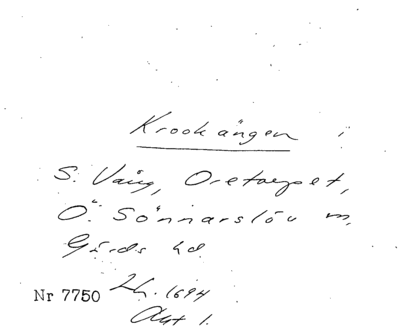 Krookängen i
S. Vång, Oretorpet,
Ö. Sönnarslöv m,
Gärds hd.
Nr 7750 Lh. 1694
Akt 1.